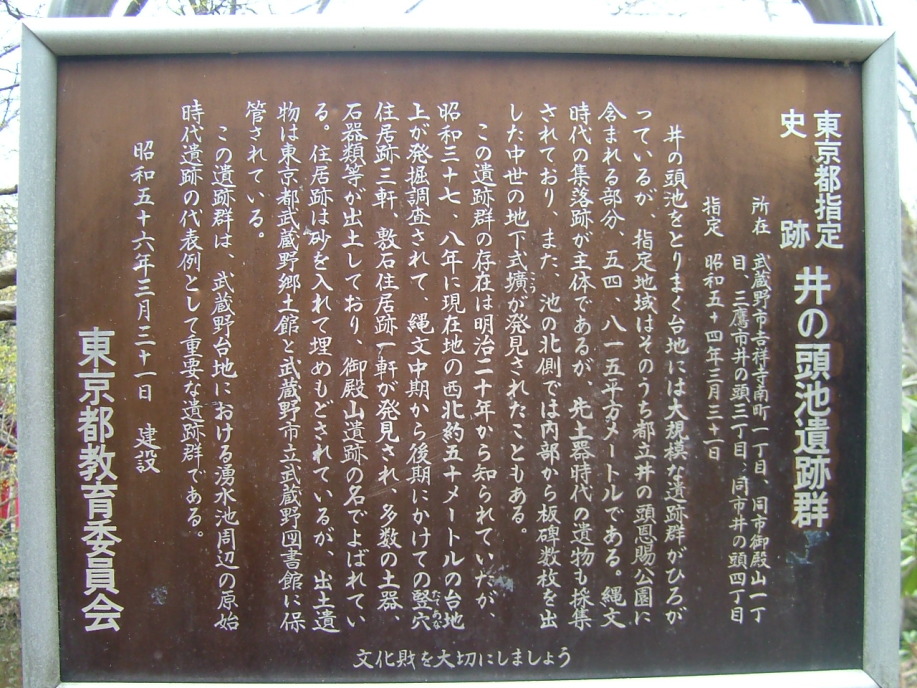 東京都指定
史跡
井の頭池遺跡群
所在 武蔵野市吉祥寺南町一丁目、同市御殿山一丁
目、三鷹市井の頭三丁目、同市井の頭四丁目
指定 昭和五十四年三月三十一日
井の頭池をとりまく台地には大規模な遺跡群がひろが
っているが、指定地域はそのうち都立井の頭恩賜公園に
含まれる部分、五四、八一五平方メートルである。縄文
時代の集落跡が主体であるが、先土器時代の遺物も採集
されており、また、池の北側では内部から板碑数枚を出
した中世の地下式壙が発見されたこともある。
この遺跡群の存在は明治二十年から知られていたが、
昭和三十七、八年に現在地の西北約五十メートルの台地
上が発掘調査されて、縄文中期から後期にかけての竪穴
たてあな
住居跡三軒、敷石住居跡一軒が発見され、多数の土器、
石器類等が出土しており、御殿山遺跡の名でよばれてい
る。住居跡は砂を入れて埋めもどされているが、出土遺
物は東京都武蔵野郷土館と武蔵野市立武蔵野図書館に保
管されている。
この遺跡群は、武蔵野台地における湧水池周辺の原始
時代遺跡の代表例として重要な遺跡群である。
昭和五十六年三月二十一日 建設
東京都教育委員会
文化財を大切にしましょう